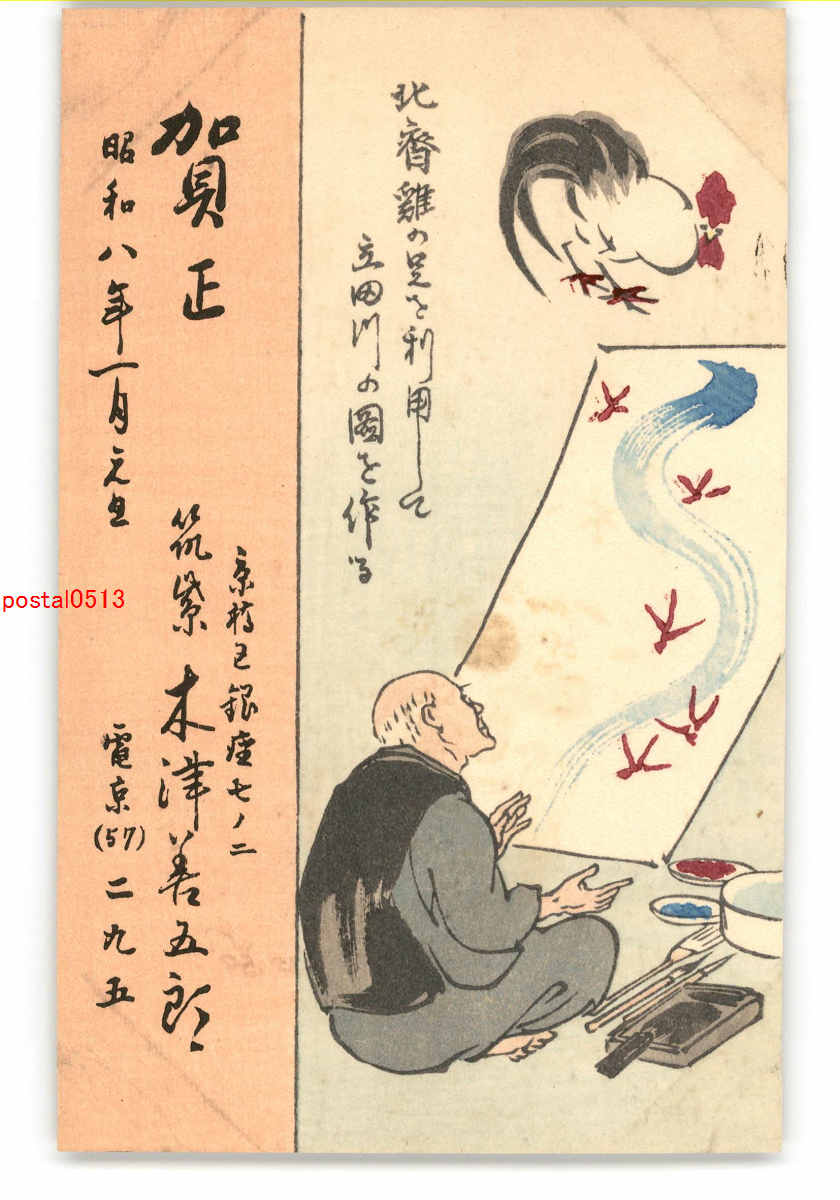 北齋雞の足を利用して
立田川の圖を作る
賀正
昭和八年一月元旦
京橋区銀座七ノ二
筑紫 木津善五郎
電京(57)二九五
postal0513